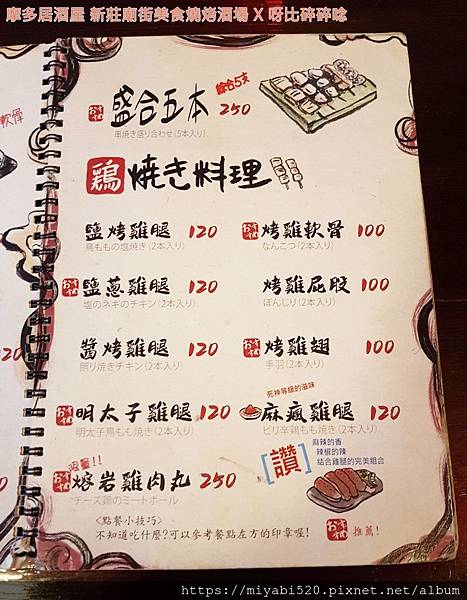 摩多居酒屋 新莊廟街美食燒烤酒場 X 呀比碎碎唸
軟骨
盛合五本 250
綜合5支
串焼き盛り合わせ(5本入り)
鶏 焼き料理
鹽烤雞腿 120
鳥ももの塩焼き(2本入り)
烤雞軟骨 100
なんこつ(2本入り)
鹽蔥雞腿 120
塩のネギのチキン(2本入り)
烤雞屁股 100
ぼんじり(2本入り)
醬烤雞腿 120
照り焼きチキン(2本入り)
烤雞翅 100
手羽(2本入り)
明太子雞腿 120
明太子鳥もも焼き(2本入り)
死神等級的滋味
麻瘋雞腿 120
ピリ辛鶏もも焼き(2本入り)
限量!!
熔岩雞肉丸 250
チーズ鶏のミートボール
[讚]
麻辣的香
辣椒的辣
結合雞腿的完美組合
<點餐小技巧>
不知道吃什麼?可以參考餐點左方的印章喔!
推薦!
20
120
https://miyabi520.pixnet.net/album